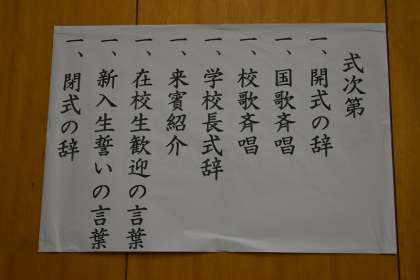 式次第
一、開式の辞
一、国歌斉唱
一、校歌斉唱
一、学校長式辞
一、来賓紹介
一、在校生歓迎の言葉
一、新入生誓いの言葉
一、閉式の辞